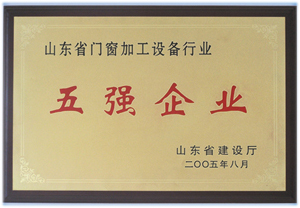 山东省门窗加工设备行业
五强企业
山东省建设厅
二〇〇五年八月